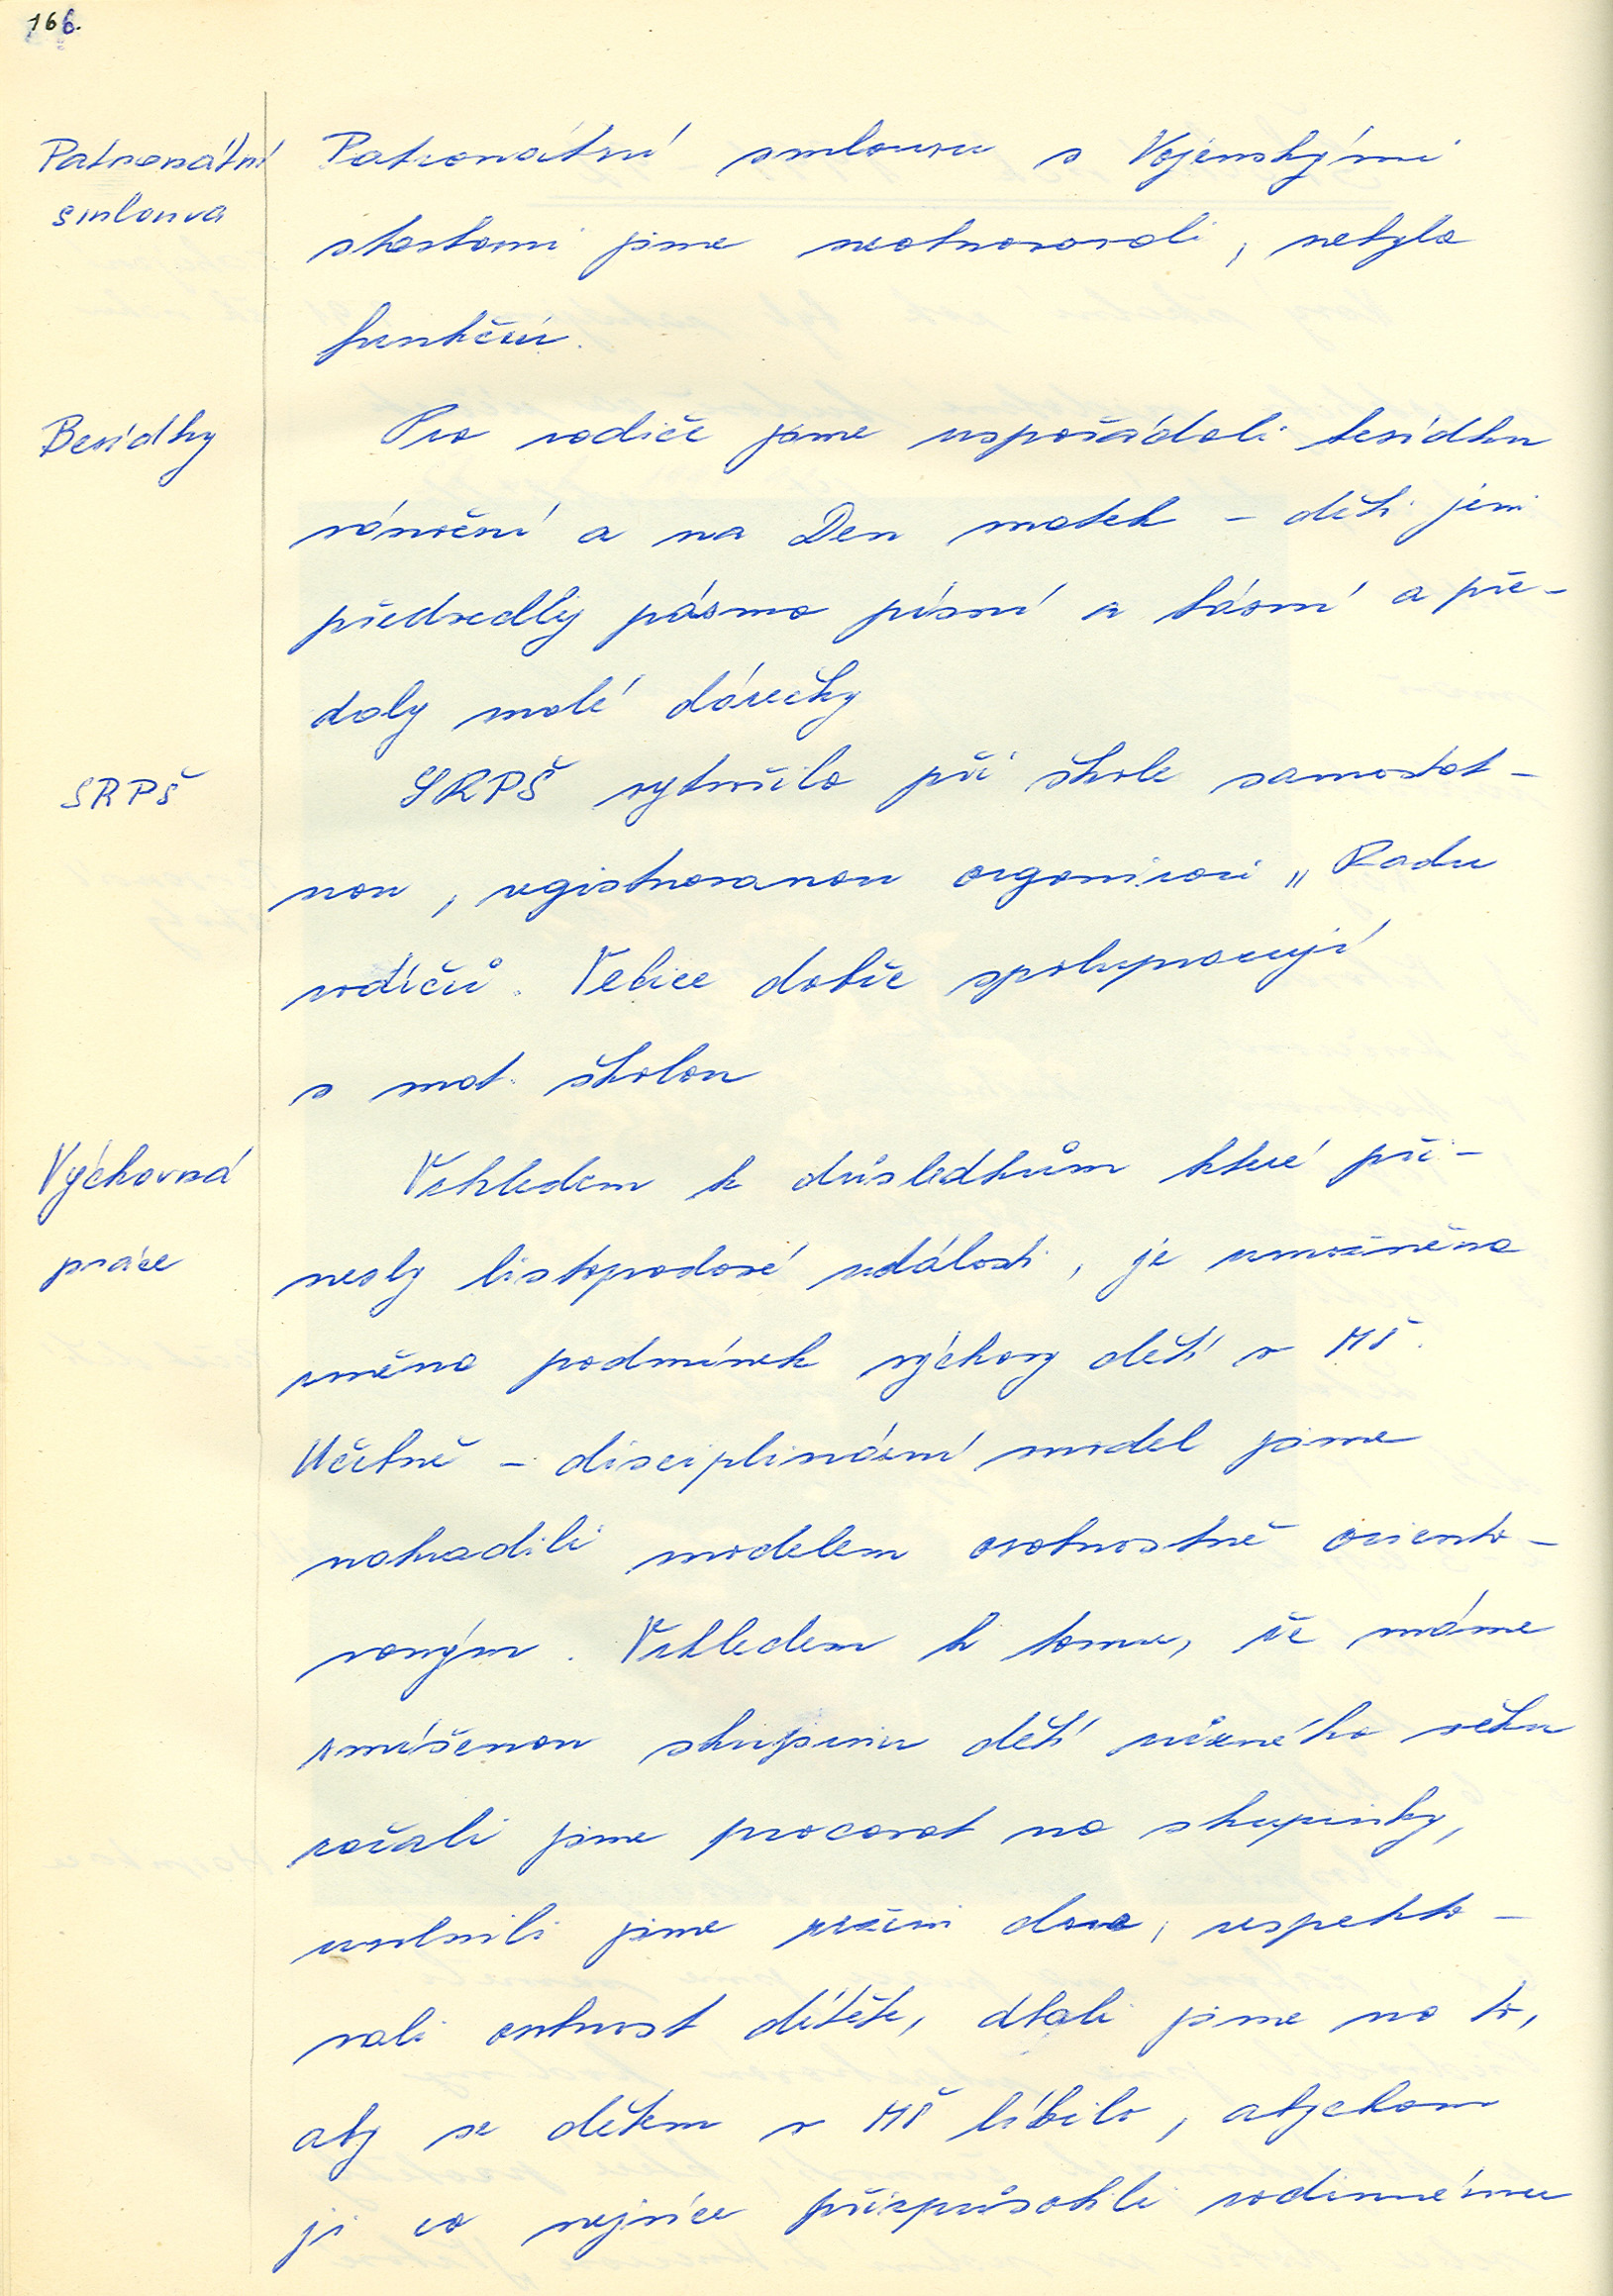 166.
Patronátní
smlouva
Patronátní smlouvu s Vojenskými
stavbami jsme neobnovovali, nebyla
funkční.
Besídky
Pro rodiče jsme uspořádali besídku
vánoční a na Den matek – děti jim
předvedly pásmo písní a básní a pře-
daly malé dárečky
SRPŠ
SRPŠ vytvořilo při škole samostat-
nou, registrovanou organizaci „Radu
rodičů. Velice dobře spolupracují
s mat. školou
Výchovná
práce
Vzhledem k důsledkům které při-
nesly listopadové události, je umožněna
změna podmínek výchovy dětí v MŠ.
Učebně – disciplinární model jsme
nahradili modelem osobnostně oriento-
vaným. Vzhledem k tomu, že máme
smíšenou skupinu dětí různého věku
začali jsme pracovat na skupinky,
uvolnili jsme režim dne, respekto-
vali osobnost dítěte, dbali jsme na to,
aby se dětem v MŠ líbilo, abychom
ji co nejvíce přizpůsobili rodinnému